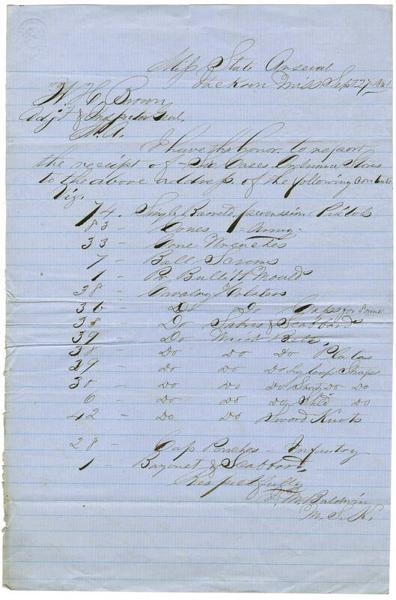 State Arsenal
Jackson Miss Sept 27
W. H. Brown
Adjt & Inspector Genl
I have the honor to report
the receipt of Six Cases Ordnance Stores
to the above address of the following contents
Viz.
74 - Single Barreled percussion Pistols
83 - Cones - Army
33 - Cone
7 - Ball Screws
1 - P. Bullet Mould
38 - Cavalry Holsters
36 - Do Do Caps for Same
38 - Do Sabres & Scabbards
39 - Do Waist Belts
30 - Do Do Do Plates
29 - Do Do Do Straps
30 - Do Do Do Do
6 - Do Do Do Do
42 - Do Do Sword Knots
28 - Cap Pouches - Infantry
1 - Bayonet & Scabbard
Respectfully
Baldwin
M. S. K.